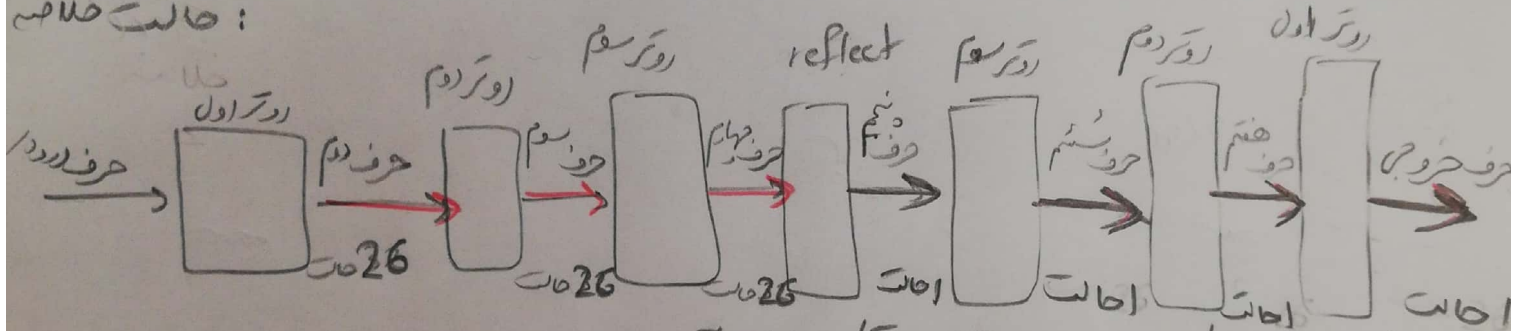 حالت خلاصه :
روتر اول
روتر دوم
روتر سوم
reflect
روتر سوم
روتر دوم
روتر اول
حرف ورودی
حرف دوم
حرف سوم
حرف چهارم
حرف پنجم
حرف ششم
حرف هفتم
حرف خروجی
26 حالت
26 حالت
26 حالت
1 حالت
1 حالت
1 حالت
1 حالت